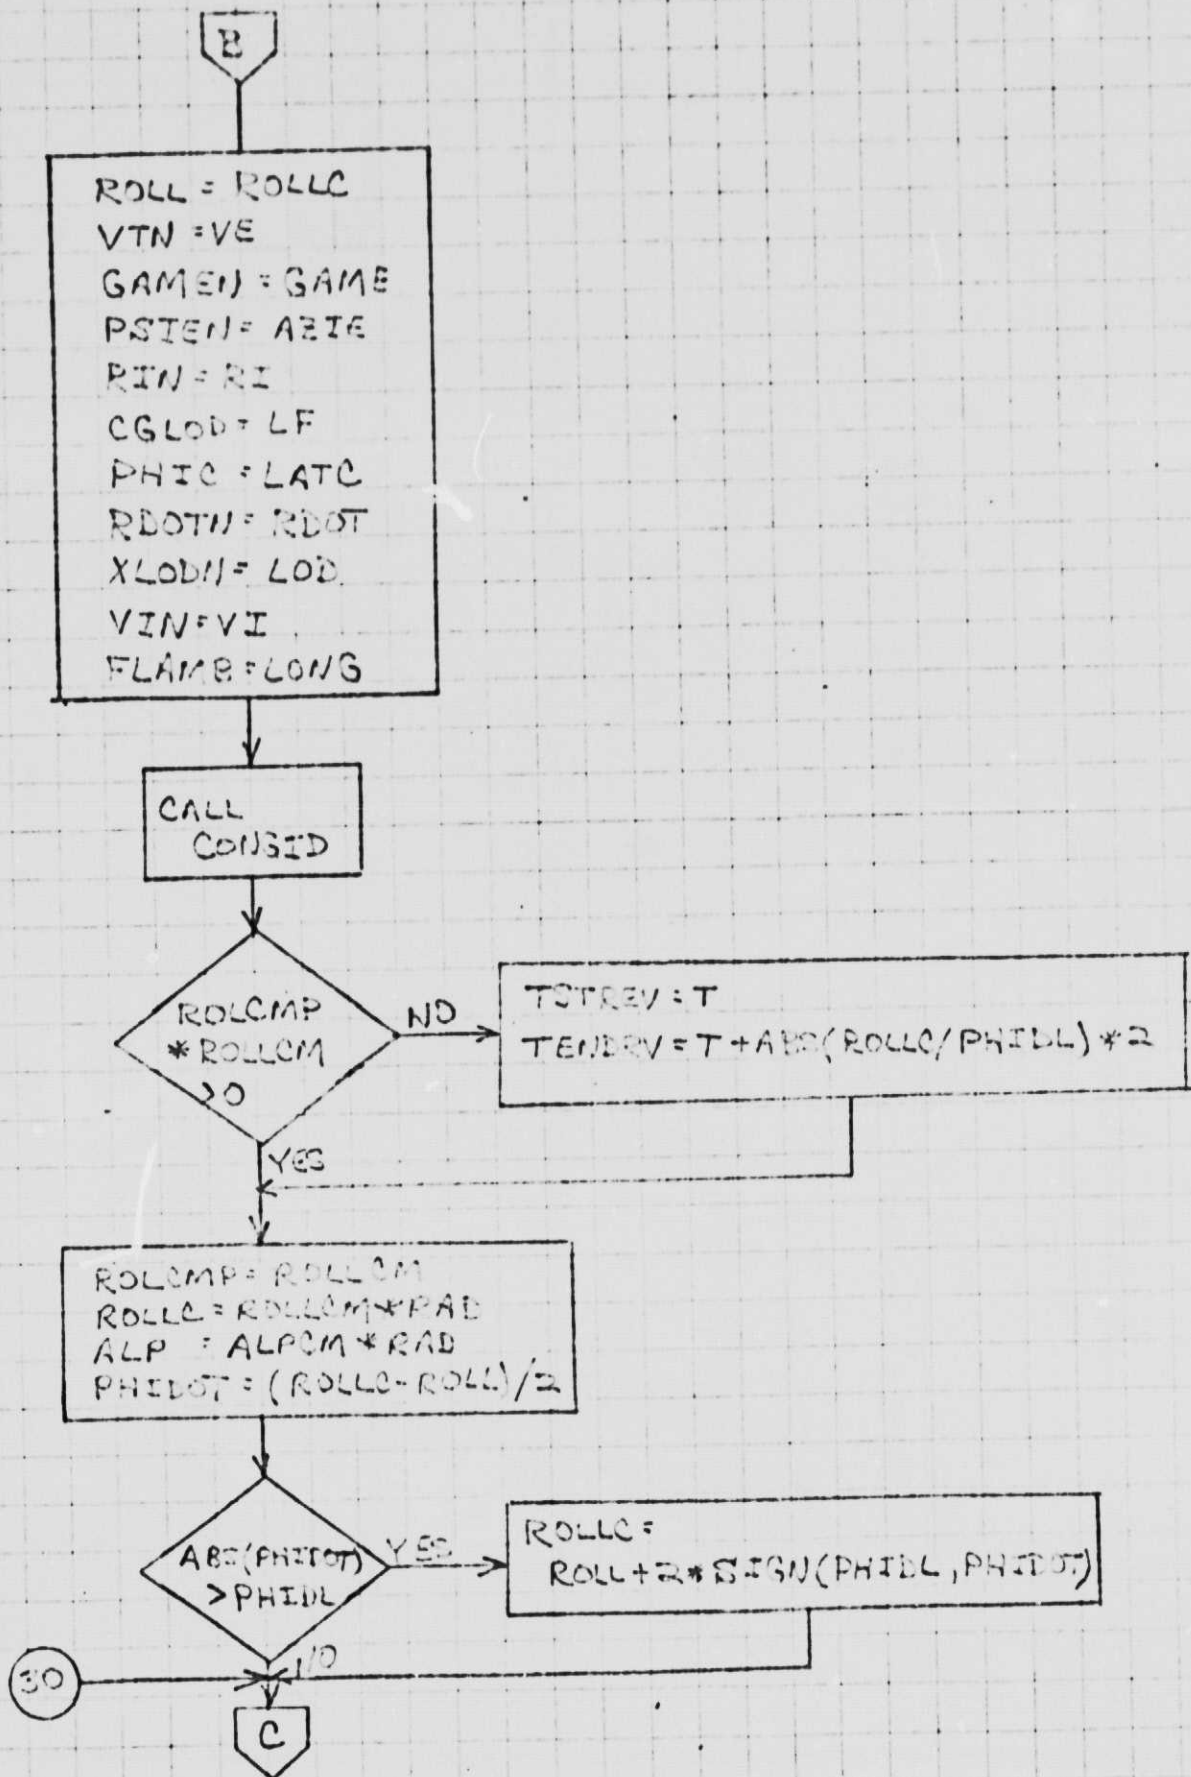 B
ROLL = ROLLC
VTN = VE
GAMEN = GAME
PSIEN = AZIE
RIN = RI
CGLOD = LF
PHIC = LATC
RDOTN = RDOT
XLODN = LOD
VIN = VI
FLAMB = LONG
CALL
CONGID
ROLCMP
* ROLLCM
>0
NO
TSTREV = T
TENDRV = T + ABS(ROLLC/PHIDL) * 2
YES
ROLCMP = ROLLCM
ROLLC = ROLLCM * RAD
ALP = ALPCM * RAD
PHIDOT = (ROLLC - ROLL)/2
ABS(PHIDOT)
> PHIDL
YES
ROLLC =
ROLL + 2 * SIGN(PHIDL, PHIDOT)
NO
30
C